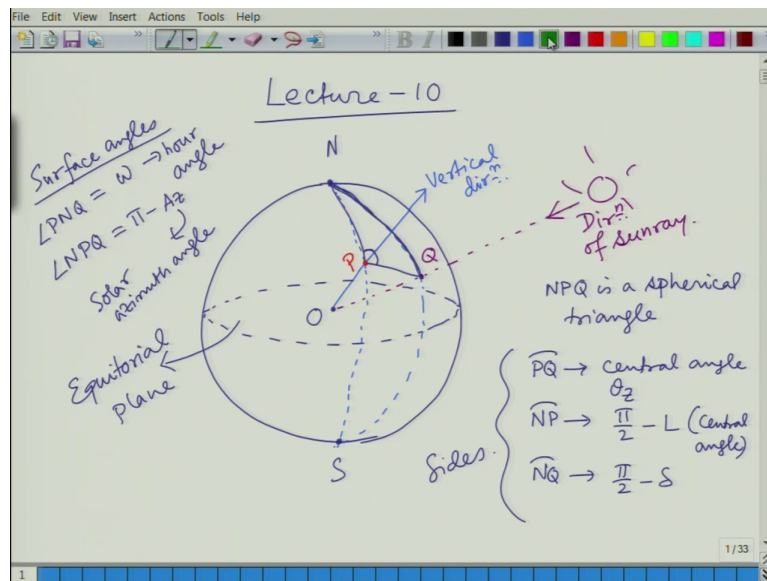 File Edit View Insert Actions Tools Help
B I
Lecture-10
Surface angles
∠PNQ = ω → hour angle
∠NPQ = π - Az
Solar azimuth angle
N
Vertical dirⁿ.
P
Q
O
S
Equitorial
plane
Dirⁿ.
of sunray.
NPQ is a spherical
triangle
Sides.
PQ → central angle
θz
NP → π/2 - L (Central
angle)
NQ → π/2 - δ
1/33
1